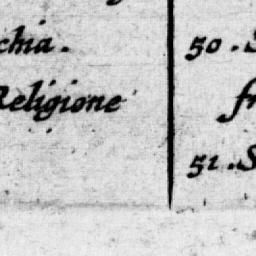 chia.
Religione
50. S
fr
51. S